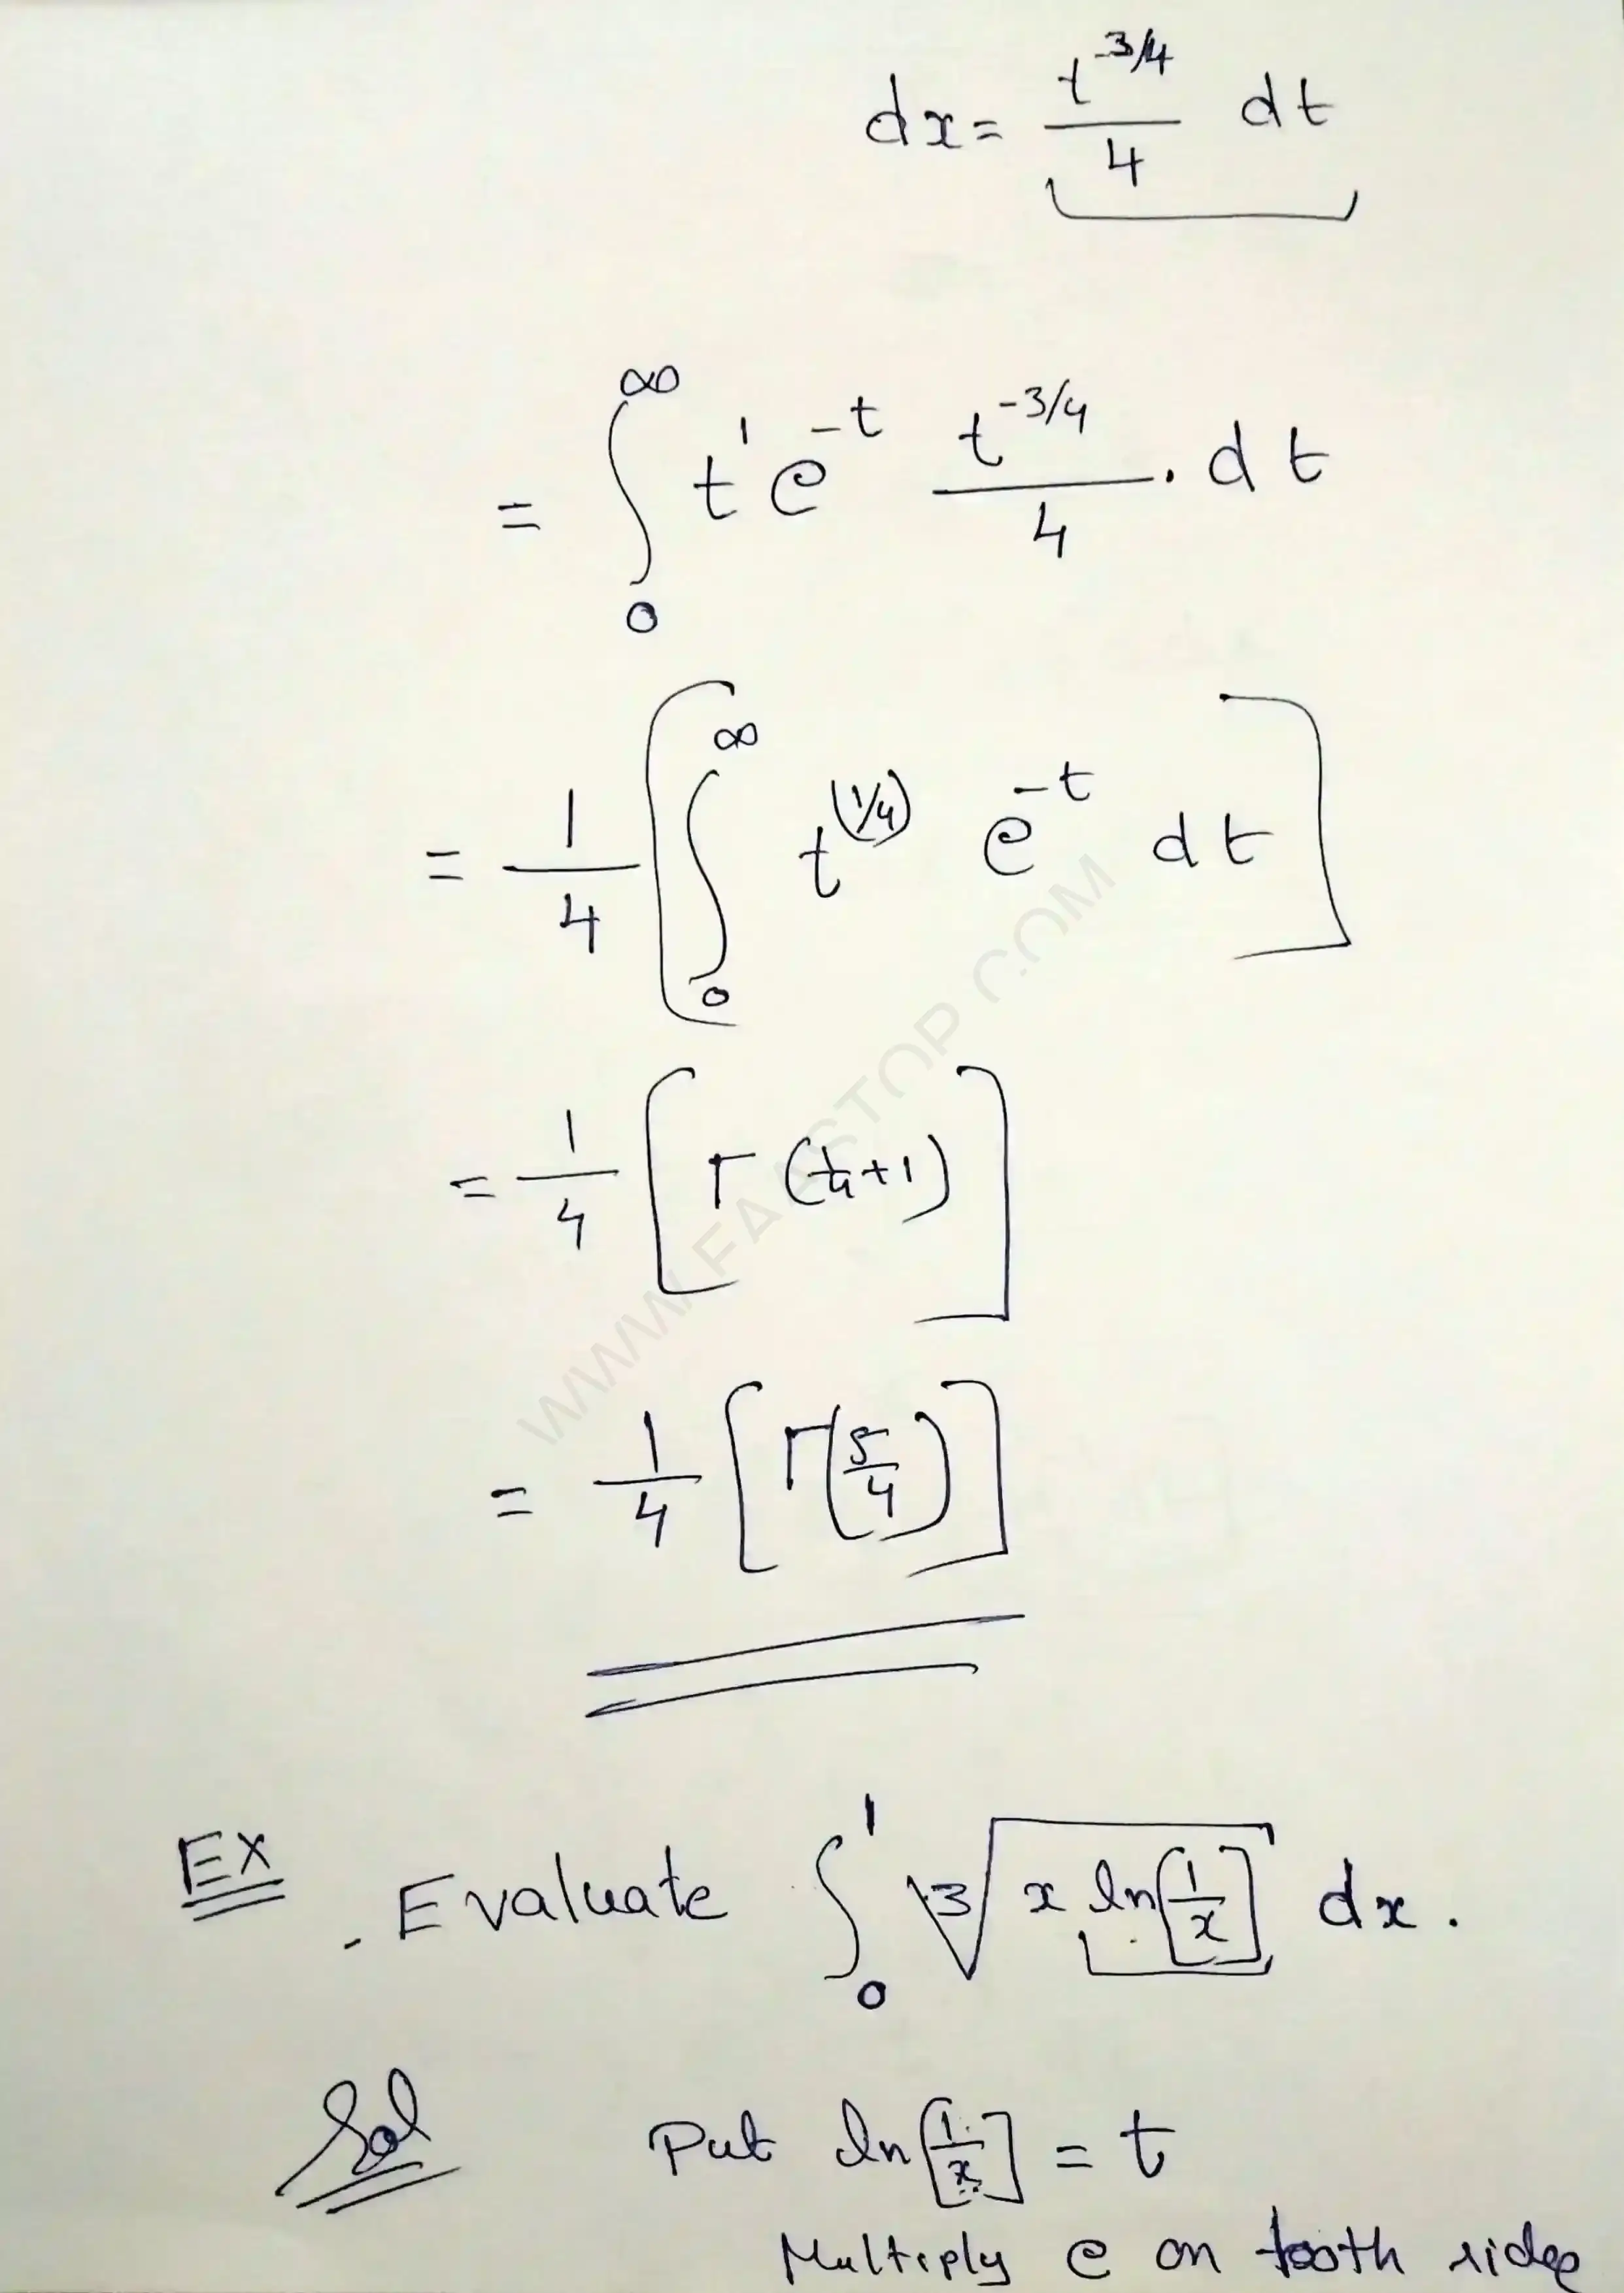 dx = t^{-3/4}/4 dt
= ∫_0^∞ t^1 e^{-t} t^{-3/4}/4 . dt
= 1/4 [ ∫_0^∞ t^{(1/4)} e^{-t} dt ]
= 1/4 [ Γ (1/4+1) ]
= 1/4 [ Γ(5/4) ]
WWW.FAASTOP.COM
Ex . Evaluate ∫_0^1 ∛(x ln[1/x]) dx .
Sol Put ln[1/x] = t
Multiply e on both sides